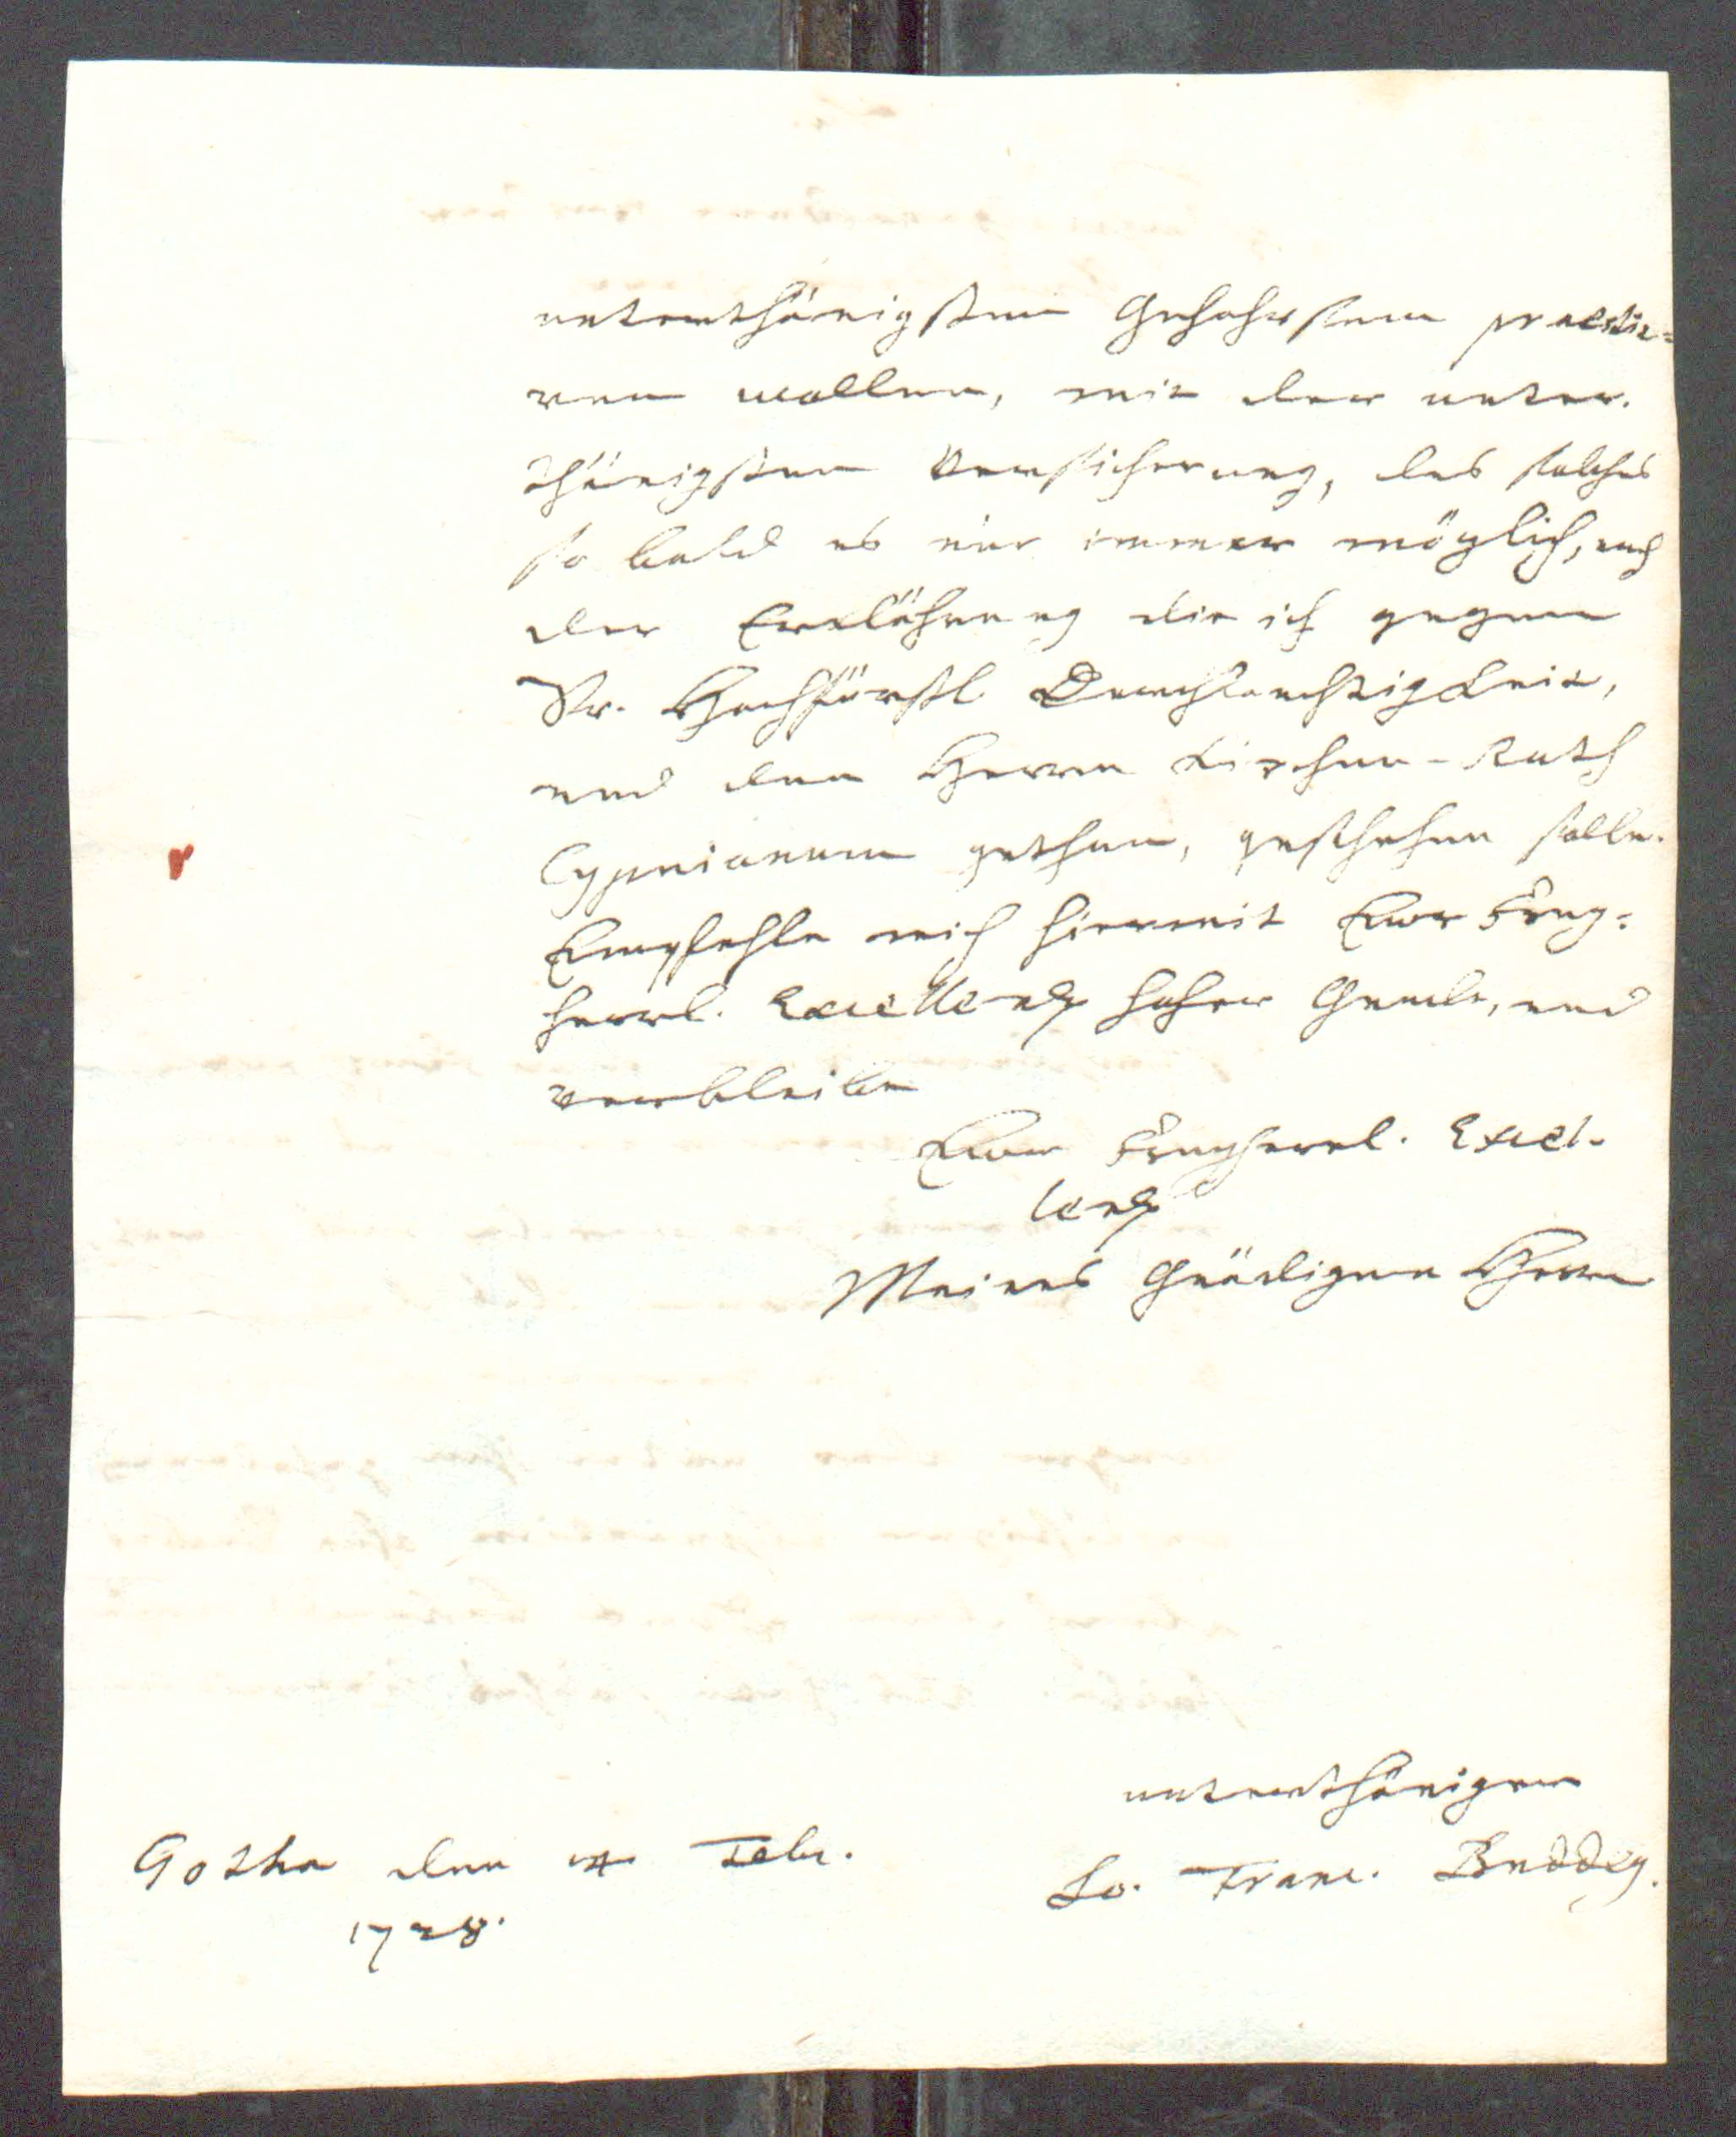 unterthänigsten Gehorsam praesti-
ren wollen, mit der unter-
thänigsten Versicherung, das solches
so bald es nur immer möglich, nach
der Erklährung die ich gegen
Sr. Hochfürstl Durchlauchtigkeit,
und den Herrn Kirchen-Rath
Cyprianum gethan, geschehen solle.
Empfehle mich hiermit Eurer Freyh-
herrl. Excellenz hoher Gnade, und
verbleibe
Eurer Freyherrl. Excel-
lenz
Meines Gnädigen Herrn
unterthäniger
Jo. Franc. Buddeg.
Gotha den Febr.
1728.